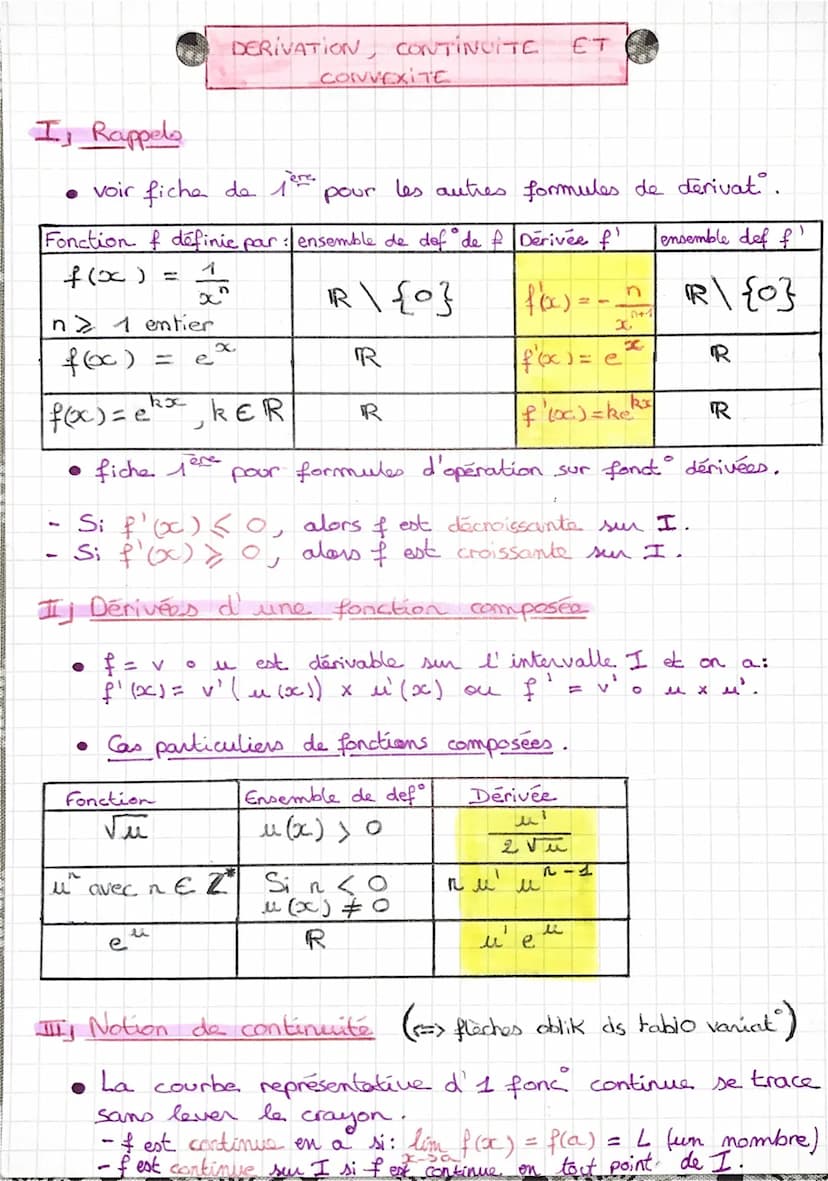 DERIVATION, CONTINUITE ET
CONVEXITE
I) Rappels
• voir fiche de 1ère pour les autres formules de dérivat°.
Fonction f définie par : | ensemble de def° de f | Dérivée f' | ensemble def f'
f(x) = 1/xⁿ n ⩾ 1 entier | ℝ \ {0} | f'(x) = - n/xⁿ⁺¹ | ℝ \ {0}
f(x) = eˣ | ℝ | f'(x) = eˣ | ℝ
f(x) = eᵏˣ, k ∈ ℝ | ℝ | f'(x) = keᵏˣ | ℝ
• fiche 1ère pour formules d'opération sur fonct° dérivées.
- Si f'(x) ⩽ 0, alors f est décroissante sur I.
- Si f'(x) ⩾ 0, alors f est croissante sur I.
II) Dérivées d'une fonction composée
• f = v ∘ u est dérivable sur l'intervalle I et on a:
f'(x) = v'(u(x)) × u'(x) ou f' = v' ∘ u × u'.
• Cas particuliers de fonctions composées.
Fonction | Ensemble de def° | Dérivée
√u | u(x) > 0 | u'/2√u
uⁿ avec n ∈ ℤ* | Si n < 0 u(x) ≠ 0 | n u' uⁿ⁻¹
eᵘ | ℝ | u' eᵘ
III) Notion de continuité (⇔ flèches oblik ds tablo variat°)
• La courbe représentative d'1 fonc° continue se trace
sans lever le crayon.
- f est continue en a si: lim x→a f(x) = f(a) = L (un nombre)
- f est continue sur I si f est continue en tout point de I.